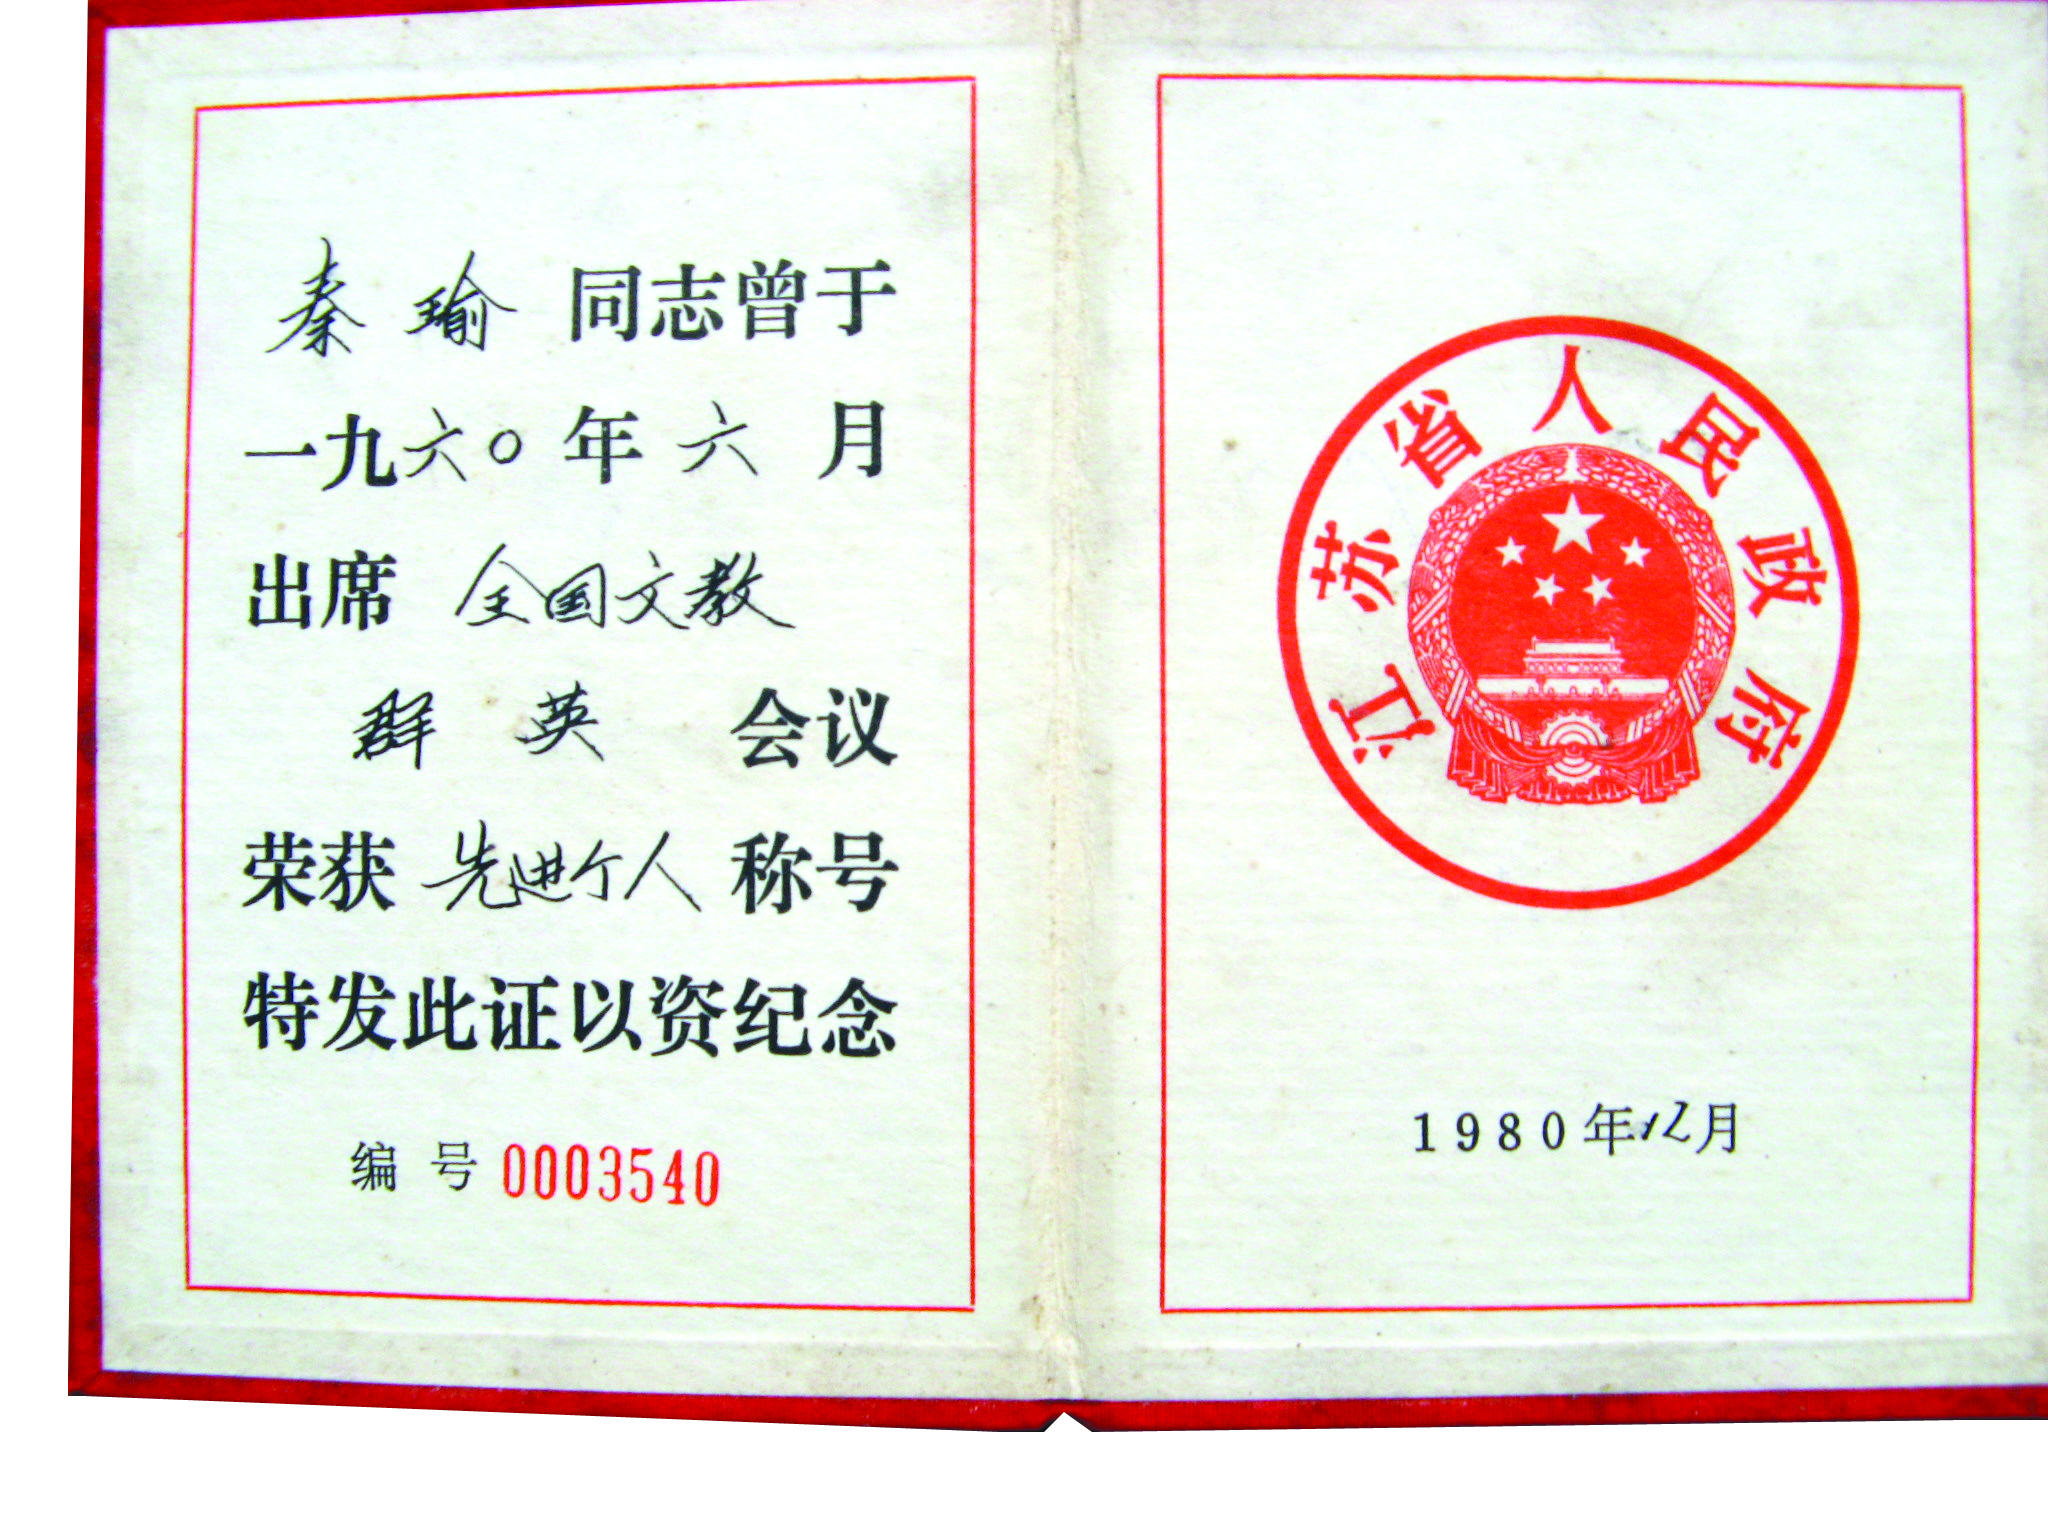 秦瑜同志曾于
一九六〇年六月
出席全国文教
群英会议
荣获先进个人称号
特发此证以资纪念
编号 0003540
江苏省人民政府
1980年12月